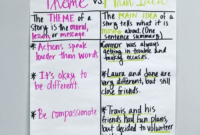 Theme vs Main Idea
The THEME of a
story is the moral,
lesson, or message
The MAIN IDEA of a
story tells what it is
mostly about. (One
sentence summary)
*Actions speak
louder than words
*Connor was always
getting in trouble and
making excuses.
*It's okay to
be different.
*Laura and Jane are
very different, but still
close friends.
*Be compassionate
*Travis and his
friends had fun plans,
but decided to volunteer